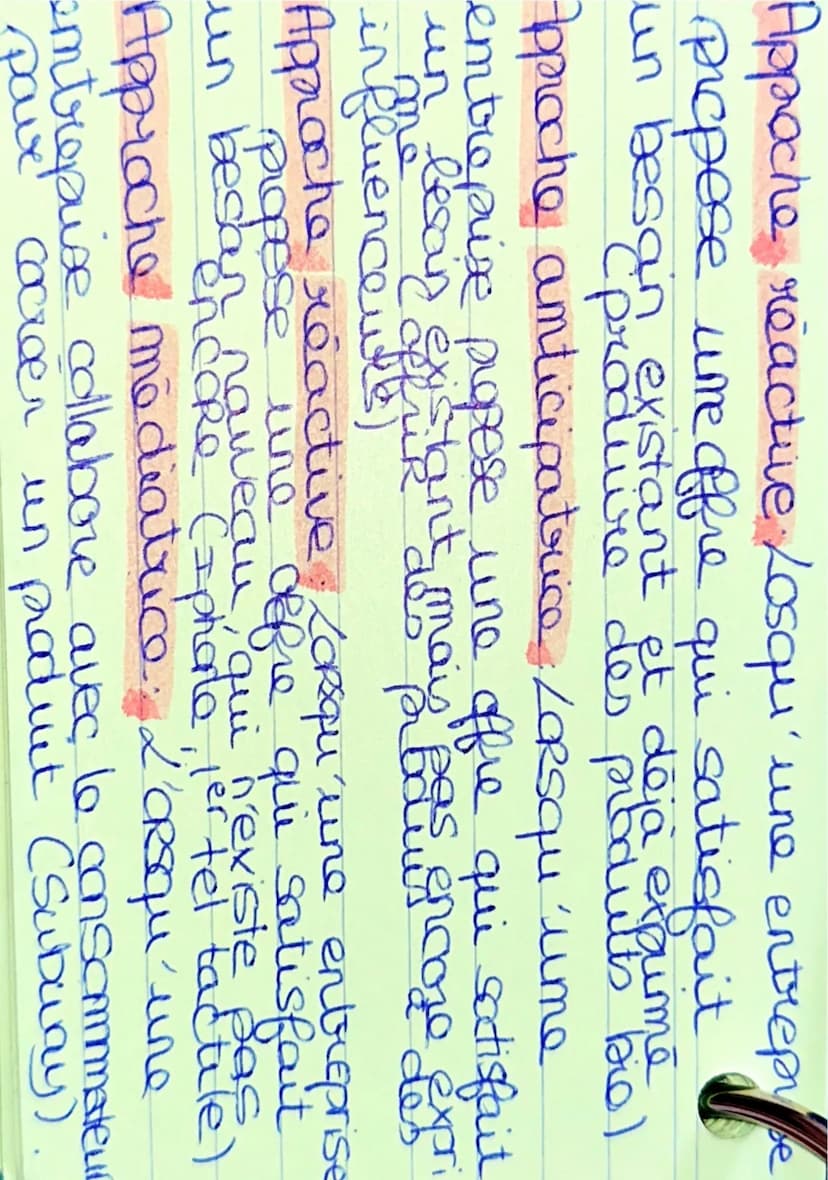 Approche réactive: Losqu'une entreprise
propose une offre qui satisfait
un besoin existant et déjà exprimé
(produire des produits bio)
Approche anticipatrice: Lorsqu'une
entreprise propose une offre qui satisfait
un besoin existant, mais pas encore expri
mé (offrir des produits des
influenceurs)
Approche réactive: Lorsqu'une entreprise
propose une offre qui satisfait
besoin nouveau, qui n'existe pas
un encore (Iphone, 1er tel tactile)
Approche médiatrice: L'orsqu'une
entreprise collabore avec le consommateur
pour cocréer un produit (Subway).